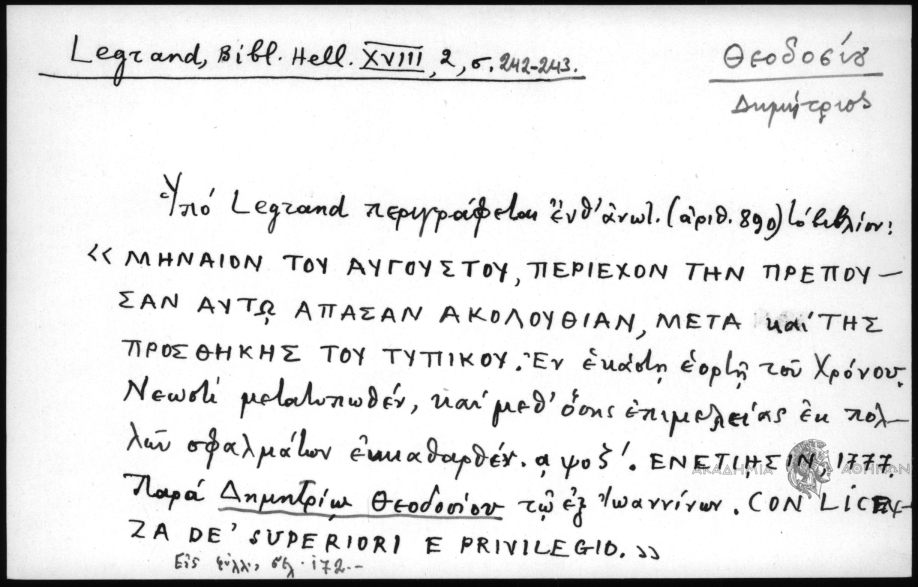 Legrand, Bibl. Hell. XVIII, 2, σ. 242-243.
Θεοδοσίου
Δημήτριος
Ὑπό Legrand περιγράφεται ἔνθ' ἀνωτ. (ἀριθ. 890) τό βιβλίον:
«ΜΗΝΑΙΟΝ ΤΟΥ ΑΥΓΟΥΣΤΟΥ, ΠΕΡΙΕΧΟΝ ΤΗΝ ΠΡΕΠΟΥ-
ΣΑΝ ΑΥΤῼ ΑΠΑΣΑΝ ΑΚΟΛΟΥΘΙΑΝ, ΜΕΤΑ καί ΤΗΣ
ΠΡΟΣΘΗΚΗΣ ΤΟΥ ΤΥΠΙΚΟΥ. Ἐν ἑκάστῃ ἑορτῇ τοῦ Χρόνου.
Νεωστί μετατυπωθέν, καί μεθ' ὅσης ἐπιμελείας ἐκ πολ-
λῶν σφαλμάτων ἐκκαθαρθέν. α ψοζ'. ΕΝΕΤΙΗΣΙΝ, 1777.
Παρά Δημητρίῳ Θεοδοσίου τῷ ἐξ Ἰωαννίνων. CON LICEN-
ZA DE' SUPERIORI E PRIVILEGIO.»
Εἰς φύλλ., σελ. 172.-
ΑΚΑΔΗΜΙΑ ΑΘΗΝΩΝ